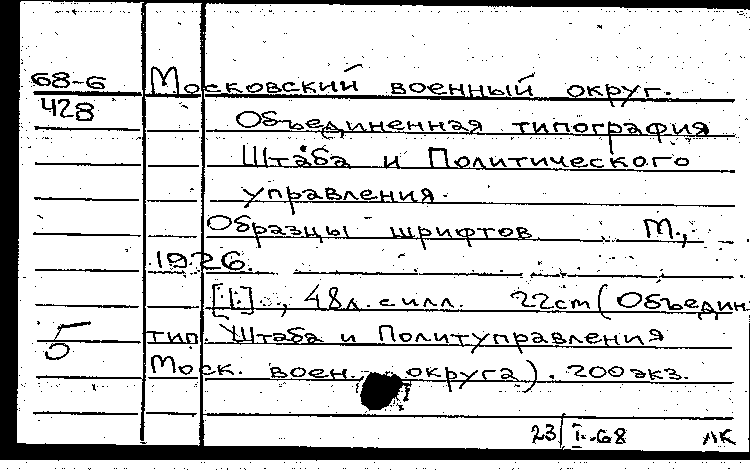 68-6 Московский военный округ.
428 Объединенная типография
Штаба и Политического
управления.
Образцы шрифтов М.,
1926.
[1], 48л. с илл. 22cm (Объедин.
5 тип. Штаба и Политуправления
Моск. воен. округа). 200экз.
23/I-68 ЛК